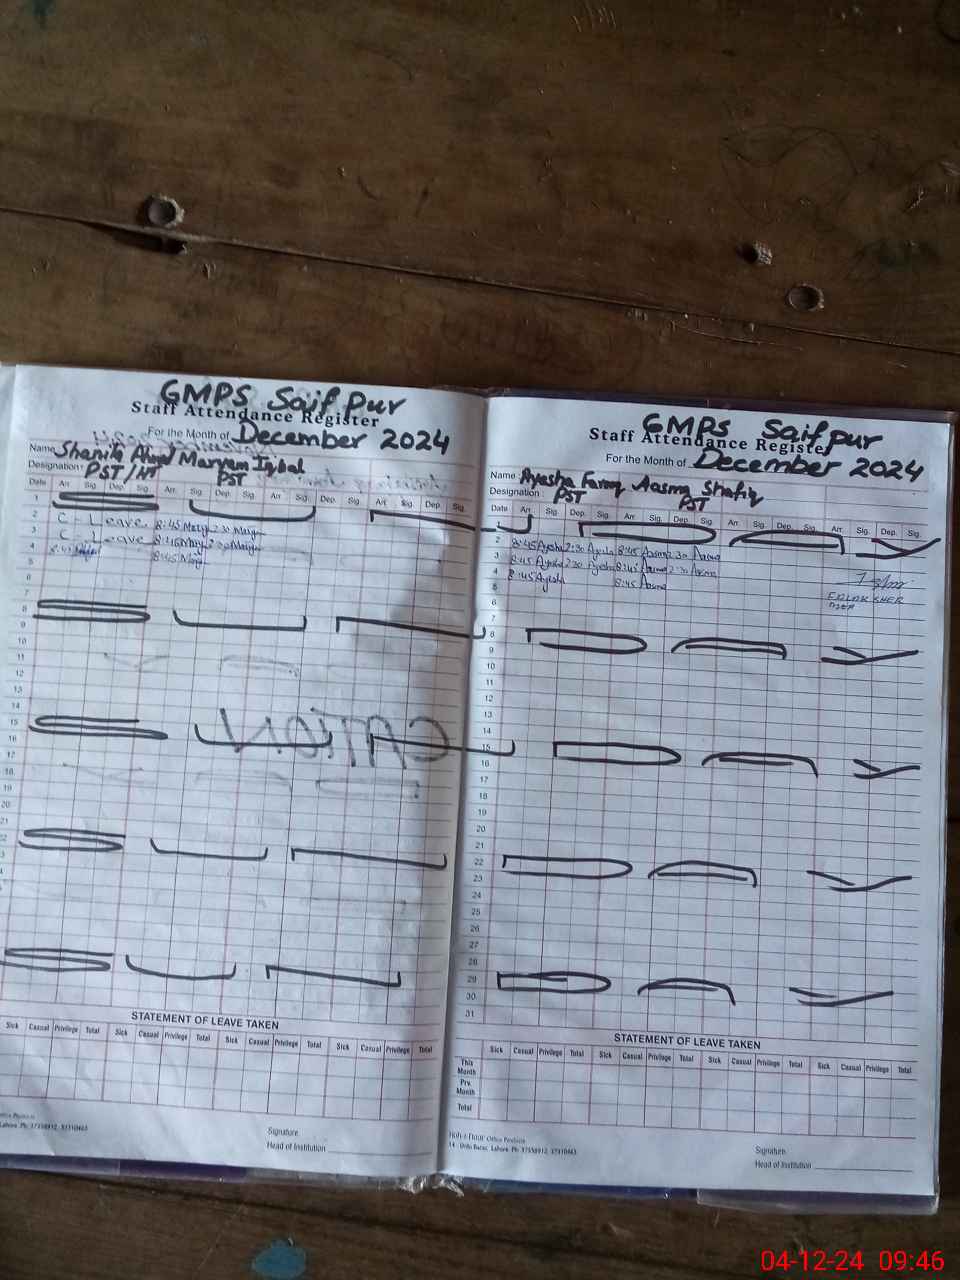 GMPS Saifpur
Staff Attendance Register
For the Month of December 2024
Name Shanila Maryam Iqbal
Designation: PST/HT PST
Date Arr. Sig. Dep. Sig. Arr. Sig. Arr. Sig. Dep. Sig. Arr. Sig. Dep. Sig.
1
2 C - Leave 8:45 2:30
3 C - Leave 8:45 2:30
4 8:45
5
6
7
8
9
10
11
12
13
14
15
16
17
18
19
20
21
22
3
4
STATEMENT OF LEAVE TAKEN
Sick Casual Privilege Total Sick Casual Privilege Total Sick Casual Privilege Total Sick Casual Privilege Total
Office Products
Lahore. Ph: 37358912, 37310463
Signature
Head of Institution
GMPS Saifpur
Staff Attendance Register
For the Month of December 2024
Name Ayesha Farooq Aasma Shafiq
Designation: PST PST
Date Arr. Sig. Dep. Sig. Arr. Sig. Dep. Sig. Arr. Sig. Dep. Sig. Arr. Sig. Dep. Sig.
2 8:45 Ayesha 2:30 Ayesha 8:45 Aasma 2:30 Aasma
3 8:45 Ayesha 2:30 Ayesha 8:45 Aasma 2:30 Aasma
4 8:45 Ayesha 8:45 Aasma
5
SHER
6
7
8
9
10
11
12
13
14
15
16
17
18
19
20
21
22
23
24
25
26
27
28
29
30
31
STATEMENT OF LEAVE TAKEN
Sick Casual Privilege Total Sick Casual Privilege Total Sick Casual Privilege Total Sick Casual Privilege Total
This Month
Prv. Month
Total
Office Products
14 - Urdu Bazar, Lahore. Ph: 37358912, 37310463
Signature
Head of Institution
04-12-24 09:46